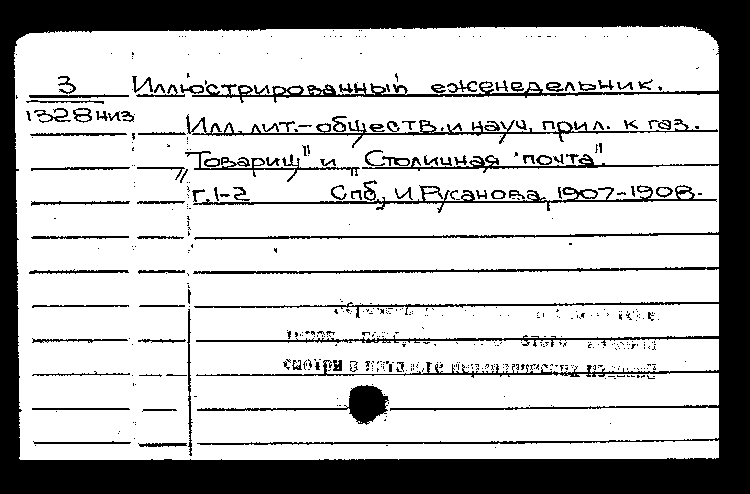 3 Иллюстрированный еженедельник.
1328 низ
Илл. лит.-обществ. и науч. прил. к газ.
„Товарищ" и „Столичная почта".
г.1-2 Спб, И.Русанова, 1907-1908.
этого
смотри в каталоге периодических изданий